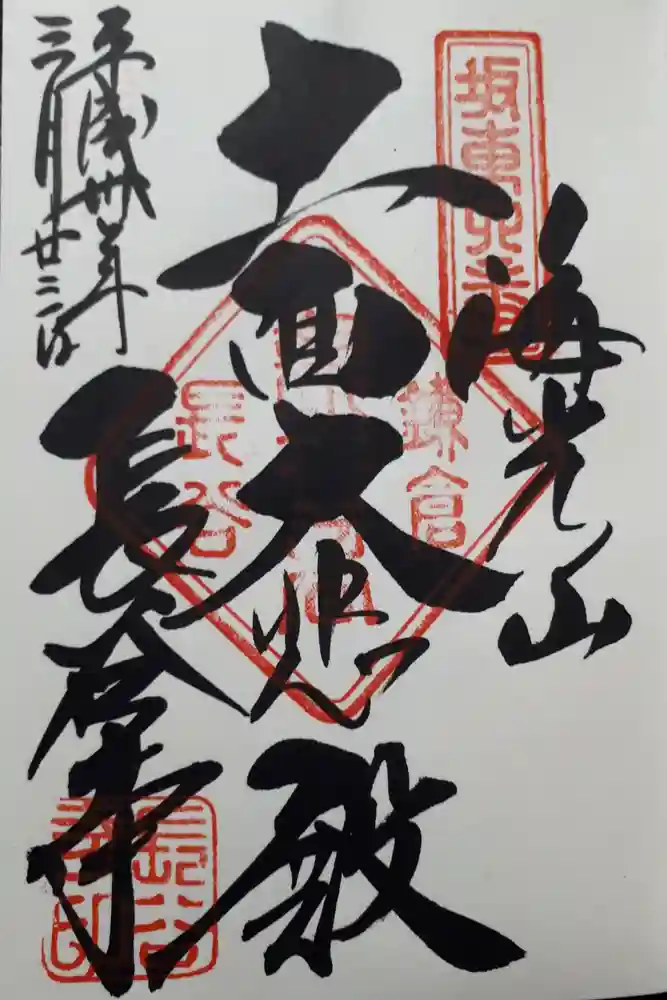 坂東四番
海光山
十一面大悲殿
鎌倉
長谷
平成卅年
三月廿二日
長谷寺
長谷寺印